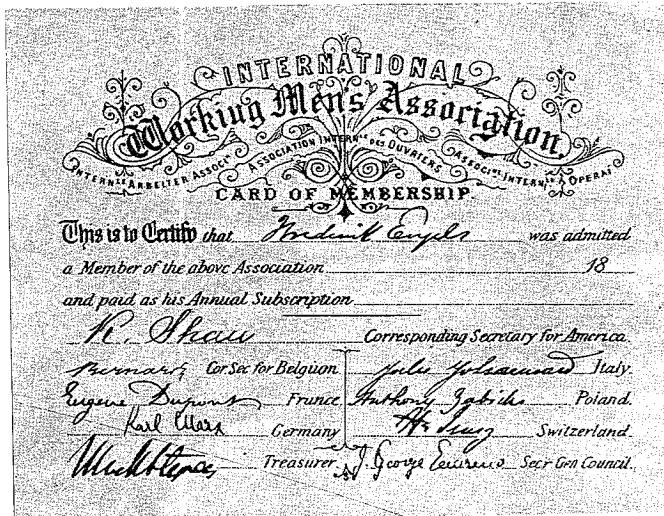 INTERNATIONAL
Working Men's Association.
INTERN.LE ARBEITER ASSOC.N ASSOCIATION INTERN.LE DES OUVRIERS ASSOCI.NE INTERN.LE OPERAI
CARD OF MEMBERSHIP.
This is to Certify that Frederick Engels was admitted
a Member of the above Association 18
and paid as his Annual Subscription
R. Shaw Corresponding Secretary for America
Bernard Cor Sec for Belgium Italy
Eugene Dupont France Anthony Zabicki Poland.
Karl Marx Germany H. Jung Switzerland
Treasurer J. George Eccarius Secr Gen Council.